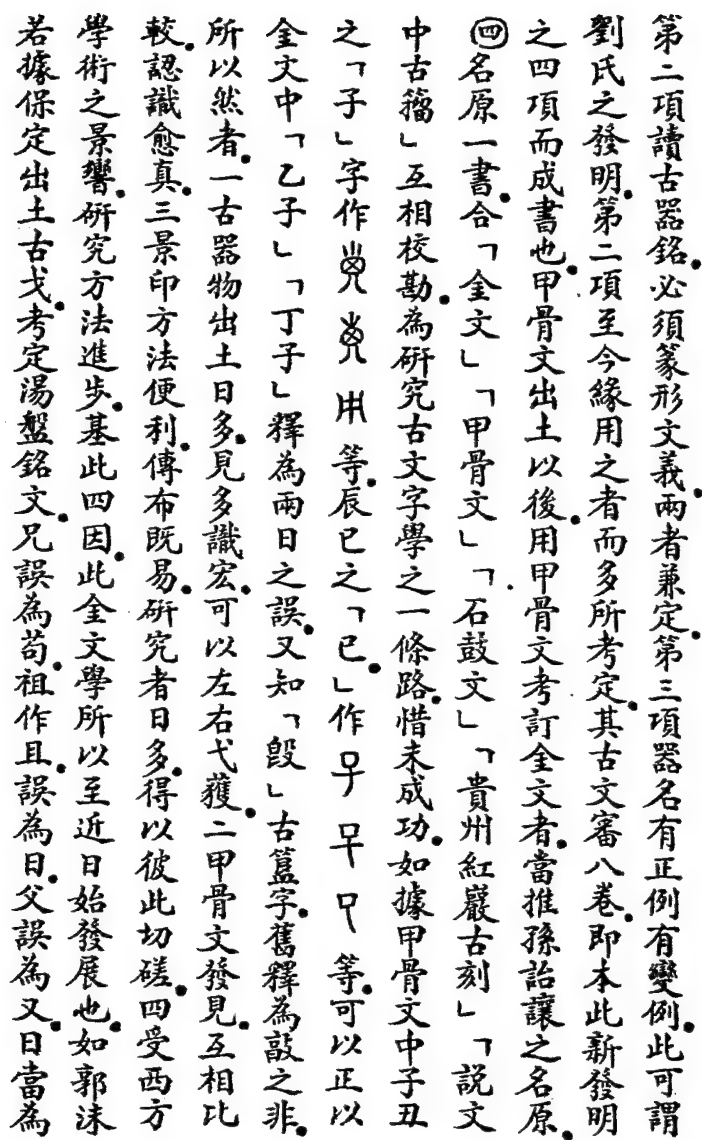 第二項讀古器銘。必須篆形文義。兩者兼定。第三項器名有正例有變例。此可謂
劉氏之發明。第二項至今緣用之者而多所考定。其古文審八卷。即本此新發明
之四項而成書也。甲骨文出土以後。用甲骨文考訂金文者。當推孫詒讓之名原。
㊃名原一書。合「金文」「甲骨文」「石鼓文」「貴州紅巖古刻」「說文
中古籀」互相校勘。為研究古文字學之一條路。惜未成功。如據甲骨文中子丑
之「子」字作 等。辰巳之「巳」作 等。可以正以
金文中「乙子」「丁子」釋為兩日之誤。又知「𣪘」古簋字。舊釋為敲之非。
所以然者。一古器物出土日多。見多識宏。可以左右弋獲。二甲骨文發見。互相比
較。認識愈真。三景印方法便利。傳布既易。研究者日多。得以彼此切磋。四受西方
學術之景響。研究方法進步。基此四因。此金文學所以至近日始發展也。如郭沫
若據保定出土古戈。考定湯盤銘文。兄誤為苟。祖作且。誤為日。父誤為又。日當為